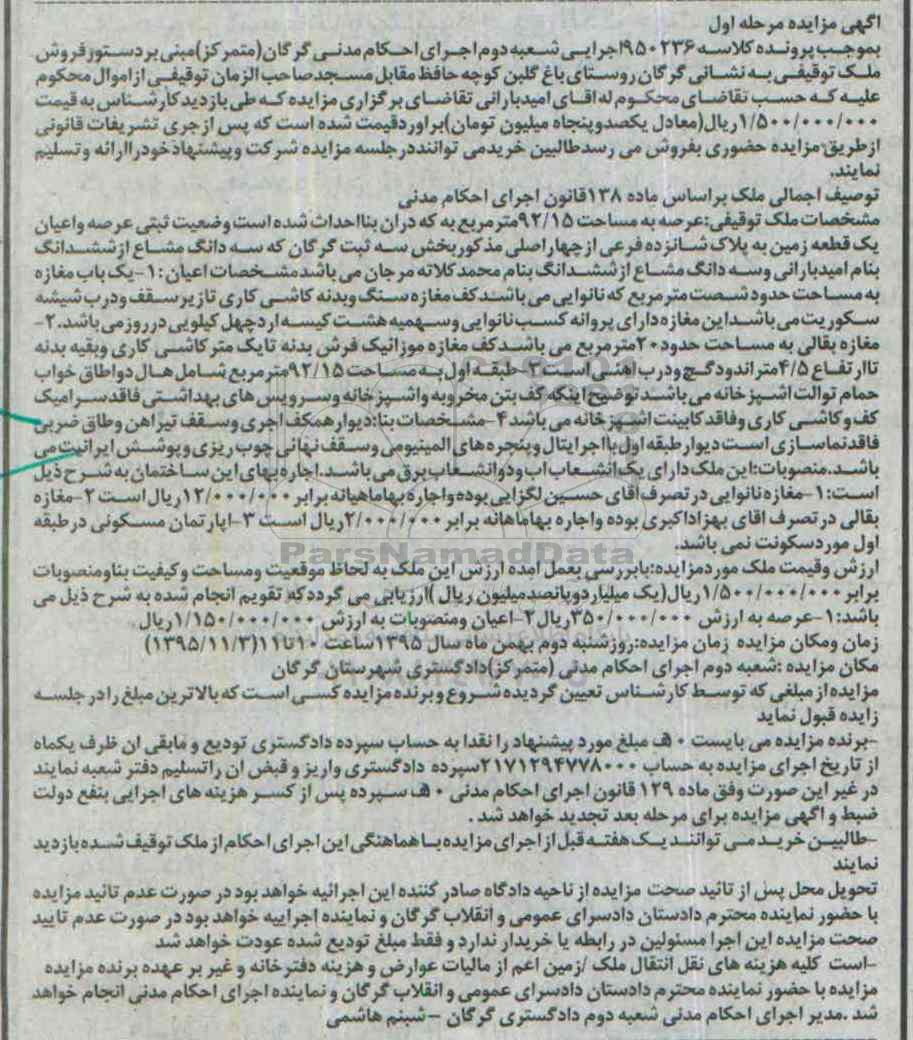 اگهی مزایده مرحله اول
بموجب پرونده کلاسه ۹۵۰۲۳۶اجرایی شعبه دوم اجرای احکام مدنی گرگان(متمرکز)مبنی بر دستور فروش
ملک توقیفی به نشانی گرگان روستای باغ گلبن کوچه حافظ مقابل مسجد صاحب الزمان توقیفی از اموال محکوم
علیه که حسب تقاضای محکوم له اقای امید بارانی تقاضای برگزاری مزایده که طی بازدید کارشناس به قیمت
۱/۵۰۰/۰۰۰/۰۰۰ریال(معادل یکصدوپنجاه میلیون تومان)براورد قیمت شده است که پس از جری تشریفات قانونی
از طریق مزایده حضوری بفروش می رسد طالبین خرید می توانند در جلسه مزایده شرکت و پیشنهاد خود را ارائه و تسلیم
نمایند.
توصیف اجمالی ملک بر اساس ماده ۱۳۸قانون اجرای احکام مدنی
مشخصات ملک توقیفی:عرصه به مساحت ۹۲/۱۵متر مربع به که در ان بنا احداث شده است وضعیت ثبتی عرصه واعیان
یک قطعه زمین به پلاک شانزده فرعی از چهار اصلی مذکور بخش سه ثبت گرگان که سه دانگ مشاع از ششدانگ
بنام امید بارانی وسه دانگ مشاع از ششدانگ بنام محمد کلاته مرجان می باشد مشخصات اعیان :۱-یک باب مغازه
به مساحت حدود شصت متر مربع که نانوایی می باشد کف مغازه سنگ وبدنه کاشی کاری تا زیر سقف ودرب شیشه
سکوریت می باشد این مغازه دارای پروانه کسب نانوایی وسهمیه هشت کیسه ارد چهل کیلویی در روز می باشد.۲-
مغازه بقالی به مساحت حدود ۲۰متر مربع می باشد کف مغازه موزانیک فرش بدنه تا یک متر کاشی کاری وبقیه بدنه
تا ارتفاع ۴/۵متر اندود گچ ودرب اهنی است ۳-طبقه اول به مساحت ۹۲/۱۵متر مربع شامل هال دو اطاق خواب
حمام توالت اشپزخانه می باشد توضیح اینکه کف بتن مخروبه واشپزخانه وسرویس های بهداشتی فاقد سرامیک
کف وکاشی کاری وفاقد کابینت اشپزخانه می باشد ۴-مشخصات بنا:دیوار همکف اجری وسقف تیراهن وطاق ضربی
فاقد نماسازی است دیوار طبقه اول با اجر ایتال وپنجره های المینیومی وسقف نهائی چوب ریزی وپوشش ایرانیت می
باشد.منصوبات:این ملک دارای یک انشعاب اب ودو انشعاب برق می باشد.اجاره بهای این ساختمان به شرح ذیل
است:۱-مغازه نانوایی در تصرف اقای حسین لگزایی بوده واجاره بها ماهیانه برابر ۱۲/۰۰۰/۰۰۰ریال است ۲-مغازه
بقالی در تصرف اقای بهزاد اکبری بوده واجاره بها ماهانه برابر ۲/۰۰۰/۰۰۰ریال است ۳-اپارتمان مسکونی در طبقه
اول مورد سکونت نمی باشد.
ParsNamadData
ارزش وقیمت ملک مورد مزایده:با بررسی بعمل امده ارزش این ملک به لحاظ موقعیت ومساحت وکیفیت بنا ومنصوبات
برابر ۱/۵۰۰/۰۰۰/۰۰۰ریال(یک میلیارد وپانصد میلیون ریال )ارزیابی می گردد که تقویم انجام شده به شرح ذیل می
باشد:۱-عرصه به ارزش ۳۵۰/۰۰۰/۰۰۰ریال ۲-اعیان ومنصوبات به ارزش ۱/۱۵۰/۰۰۰/۰۰۰ریال
زمان ومکان مزایده زمان مزایده:روز شنبه دوم بهمن ماه سال ۱۳۹۵ساعت ۱۰تا۱۱(۱۳۹۵/۱۱/۲)
مکان مزایده :شعبه دوم اجرای احکام مدنی (متمرکز)دادگستری شهرستان گرگان
مزایده از مبلغی که توسط کارشناس تعیین گردیده شروع وبرنده مزایده کسی است که بالاترین مبلغ را در جلسه
زایده قبول نماید
-برنده مزایده می بایست مبلغ مورد پیشنهاد را نقدا به حساب سپرده دادگستری تودیع و مابقی ان ظرف یکماه
از تاریخ اجرای مزایده به حساب ۲۱۷۱۲۹۴۷۷۸۰۰۰سپرده دادگستری واریز و قبض ان را تسلیم دفتر شعبه نمایند
در غیر این صورت وفق ماده ۱۲۹ قانون اجرای احکام مدنی سپرده پس از کسر هزینه های اجرایی بنفع دولت
ضبط و اگهی مزایده برای مرحله بعد تجدید خواهد شد .
-طالبین خرید می توانند یک هفته قبل از اجرای مزایده با هماهنگی این اجرای احکام از ملک توقیف شده بازدید
نمایند
تحویل محل پس از تائید صحت مزایده از ناحیه دادگاه صادر کننده این اجرائیه خواهد بود در صورت عدم تائید مزایده
با حضور نماینده محترم دادستان دادسرای عمومی و انقلاب گرگان و نماینده اجراییه خواهد بود در صورت عدم تایید
صحت مزایده این اجرا مسئولین در رابطه یا خریدار ندارد و فقط مبلغ تودیع شده عودت خواهد شد
-است کلیه هزینه های نقل انتقال ملک /زمین اعم از مالیات عوارض و هزینه دفترخانه و غیر بر عهده برنده مزایده
مزایده با حضور نماینده محترم دادستان دادسرای عمومی و انقلاب گرگان و نماینده اجرای احکام مدنی انجام خواهد
شد .مدیر اجرای احکام مدنی شعبه دوم دادگستری گرگان -شبنم هاشمی